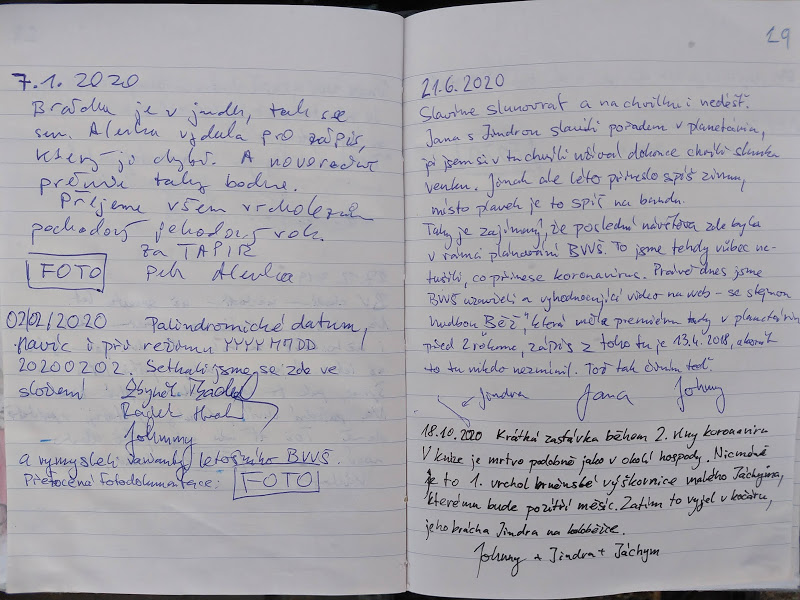 7.1. 2020
je v tak se
Alenka vydala pro zápis,
který jo chybí. A novoroční
prémie taky bodne.
Přejeme všem vrcholezcům
pochodový jehodový rok.
za TAPIR
FOTO
petr Alenka
02/02/2020 Palindromické datum,
navíc i při režimu YYYYMMDD
20200202. Setkali jsme se zde ve
složení Zbyněk
Radek
Johnny
a vymysleli varianty letošního BVVŠ.
Přetočená fotodokumentace: FOTO
29
21.6.2020
Slavíme slunovrat a na chvilku i nedéšť.
Jana s Jindrou slavili pořadem v planetáriu,
já jsem si v tu chvíli užíval dokonce chvíli slunka
venku. Jinak ale léto přineslo spíš zimu,
místo plavek je to spíš na bundu.
Taky je zajímavý, že poslední návštěva zde byla
v rámci plánování BVVŠ. To jsme tehdy vůbec ne-
tušili, co přinese koronavirus. Právě dnes jsme
BVVŠ uzavřeli a vyhodnocující video na web - se stejnou
hudbou "Běž", která měla premiéru tady v planetáriu
před 2 rokama, zápis z toho tu je 13.4.2018, akorát
to tu nikdo nezmínil. Toť tak
Jindra Jana Johnny
18.10.2020 Krátká zastávka během 2. vlny koronaviru
V knize je mrtvo podobně jako v okolí hospody. Nicméně
je to 1. vrchol brněnské výškovnice malého Jáchyma,
kterému bude pozítří měsíc. Zatím to vyjel v kočáru,
jeho brácha Jindra na koloběžce.
Johnny + Jindra + Jáchym